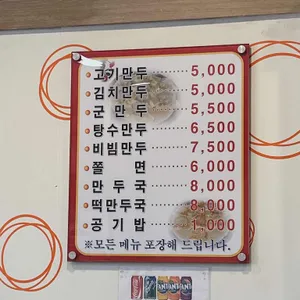 고기만두 ········ 5,000
김치만두 ········ 5,000
군만두 ········ 5,500
탕수만두 ········ 6,500
비빔만두 ········ 7,500
쫄면 ········ 6,000
만두국 ········ 8,000
떡만두국 ········ 8,000
공기밥 ········ 1,000
※모든 메뉴 포장해 드립니다.